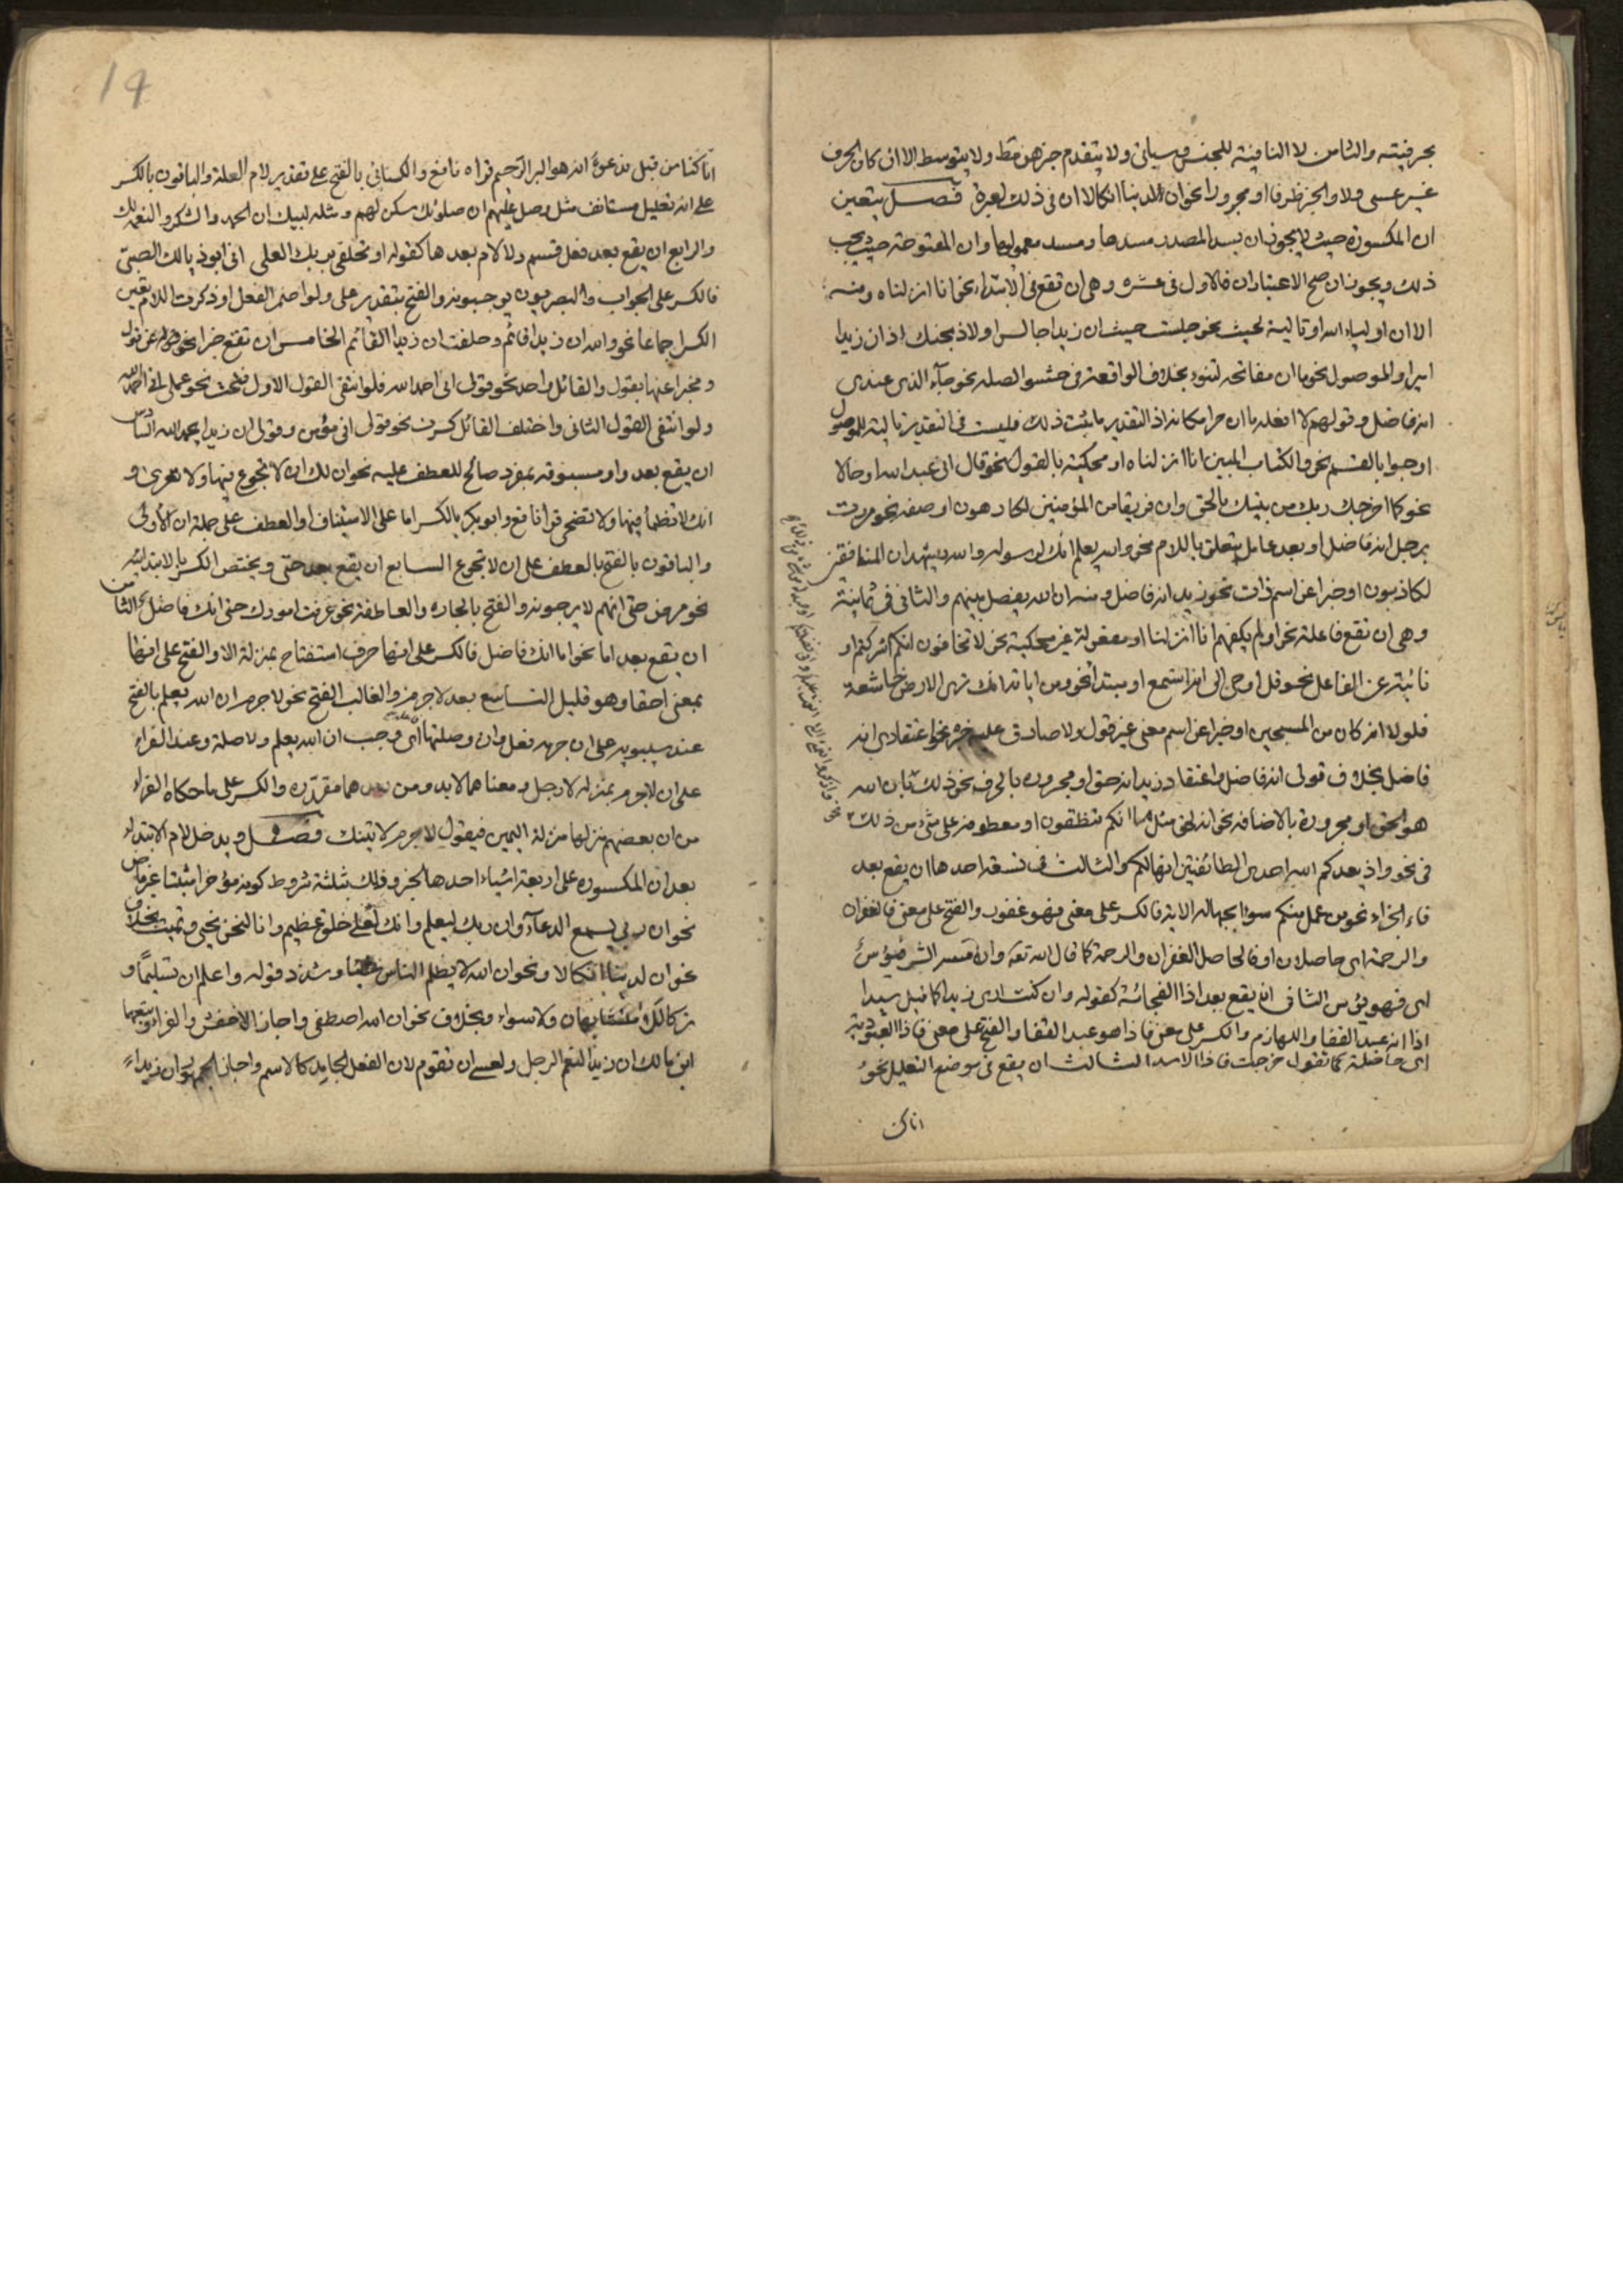 بحرفيته والثامن لا النافية للجنس وسياتى ولا يتقدم خبرهن مقط ولا يتوسط الا ان كان الحرف
غير عسى ولا والخبر ظرفا او مجرورا نحو ان لدينا انكالا ان فى ذلك لعبرة فصل يتعين
ان المكسورة حيث لا يجوز ان يسد المصدر مسدها ومسد معموليها وان المفتوحة حيث يجب
ذلك ويجوزان ان صح الاعتباران فالاول فى عشرة وهى ان تقع فى الابتداء نحو انا انزلناه ومنه
الا ان اولياء الله او تالية لحيث نحو جلست حيث ان زيدا جالس او لاذ نحو جئتك اذ ان زيدا
امير او لموصول نحو ما ان مفاتحه لتنوء بخلاف الواقعة فى حشو الصله نحو جاء الذى عندى
انه فاضل وقولهم لا افعله ما ان حرا مكانه اذ التقدير ما ثبت ذلك فليست فى التقدير تالية للموصول
او جوابا لقسم نحو والكتاب المبين انا انزلناه او محكية بالقول نحو قال انى عبد الله او حالا
نحو كما اخرجك ربك من بيتك بالحق وان فريقا من المؤمنين لكارهون او صفه نحو مررت
برجل انه فاضل او بعد عامل متعلق باللام نحو والله يعلم انك لرسوله والله يشهد ان المنافقين
لكاذبون او خبرا عن اسم ذات نحو زيد انه فاضل ومنه ان الله يفصل بينهم والثانى فى ثمانية
وهى ان تقع فاعلة نحو اولم يكفهم انا انزلنا او مفعولة غير محكية نحو لا تخافون انكم اشركتم او
نائبة عن الفاعل نحو قل اوحى الى انه استمع او مبتدأ نحو ومن اياته انك ترى الارض خاشعة
فلولا انه كان من المسبحين او خبرا عن اسم معنى غير قول ولا صادق عليه خبره نحو اعتقادى انه
فاضل بخلاف قولى انه فاضل واعتقاد زيد انه حق او مجرورة بالحرف نحو ذلك بان الله
هو الحق او مجرورة بالاضافه نحو انه لحق مثل ما انكم تنطقون او معطوفه على شئ من ذلك
فى نحو واذ يعدكم الله احدى الطائفتين انها لكم والثالث فى تسعة احدها ان يقع بعد
فاء الجزاء نحو من عمل منكم سوءا بجهاله الاية فالكسر على معنى فهو غفور والفتح على معنى فالغفران
والرحمة اى حاصلان او فالحاصل الغفران والرحمة كما قال الله تعه وان مسه الشر فيؤس
اى فهو يؤس الثانى ان يقع بعد اذا الفجائية كقوله وان كنت ارى زيدا كما قيل سيدا
اذا انه عبد القفا واللهازم والكسر على معنى فاذا هو عبد القفا والفتح على معنى فاذا العبودية
اى حاصلة كما تقول خرجت فاذا الاسد الثالث ان يقع فى موضع التعليل نحو
انا كنا
19
انا كنا من قبل ندعوه انه هو البر الرحيم قراه نافع والكسائى بالفتح على تقدير لام العلة والباقون بالكسر
على انه تعليل مستانف مثل وصل عليهم ان صلوتك سكن لهم ومثله لبيك ان الحمد والشكر والنعمه لك
والرابع ان يقع بعد فعل قسم ولا لام بعدها كقوله او تحلفى بربك العلى انى ابو ذيالك الصبى
فالكسر على الجواب والبصريون يوجبونه والفتح بتقدير على ولو اضمر الفعل او ذكرت اللام تعين
الكسر اجماعا نحو والله ان زيدا قائم وحلفت ان زيدا لقائم الخامس ان تقع خبرا عن قول
ومخبرا عنها بقول والقائل واحد نحو قولى انى احمد الله فلو انتفى القول الاول فتحت نحو عملى انى احمد الله
ولو انتفى القول الثانى واختلف القائل كسرت نحو قولى انى مؤمن وقولى ان زيدا يحمد الله السادس
ان يقع بعد واو مسبوقه بمفرد صالح للعطف عليه نحو ان لك ان لا تجوع فيها ولا تعرى و
انك لا تظمأ فيها ولا تضحى قرأ نافع وابو بكر بالكسر اما على الاستيناف او العطف على جملة ان الاولى
والباقون بالفتح بالعطف على ان لا تجوع السابع ان يقع بعد حتى ويختص الكسر بالابتدائيه
نحو مرض حتى انهم لا يرجونه والفتح بالجاره والعاطفة نحو عرفت امورك حتى انك فاضل الثامن
ان يقع بعد اما نحو اما انك فاضل فالكسر على انها حرف استفتاح بمنزلة الا والفتح على انها
بمعنى احقا وهو قليل التاسع بعد لا جرم والغالب الفتح نحو لا جرم ان الله يعلم بالفتح
عند سيبويه على ان جرم فعل وان وصلتها اى وجب ان الله يعلم ولا صلة وعند الفراء
على ان لا جرم بمنزله لا رجل ومعناهما لا بد ومن بعدهما مقدره والكسر على ما حكاه الفراء
من ان بعضهم ينزلها منزلة اليمين فيقول لا جرم لاتينك فصل ويدخل لام الابتداء
بعد ان المكسوره على اربعة اشياء احدها الخبر وذلك بثلثة شروط كونه مؤخرا مثبتا غير ماض
نحو ان ربى لسميع الدعاء وان ربك ليعلم وانك لعلى خلق عظيم وانا لنحن نحيى ونميت بخلاف
نحو ان لدينا انكالا ونحو ان الله لا يظلم الناس شيئا وشذ قوله واعلم ان تسليما و
تركا للا متشابهان ولا سواء وبخلاف نحو ان الله اصطفى واجاز الاخفش والفراء وتبعهما
ابن مالك ان زيدا لنعم الرجل ولعسى ان تقوم لان الفعل الجامد كالاسم واجاز الجمهور ان زيدا